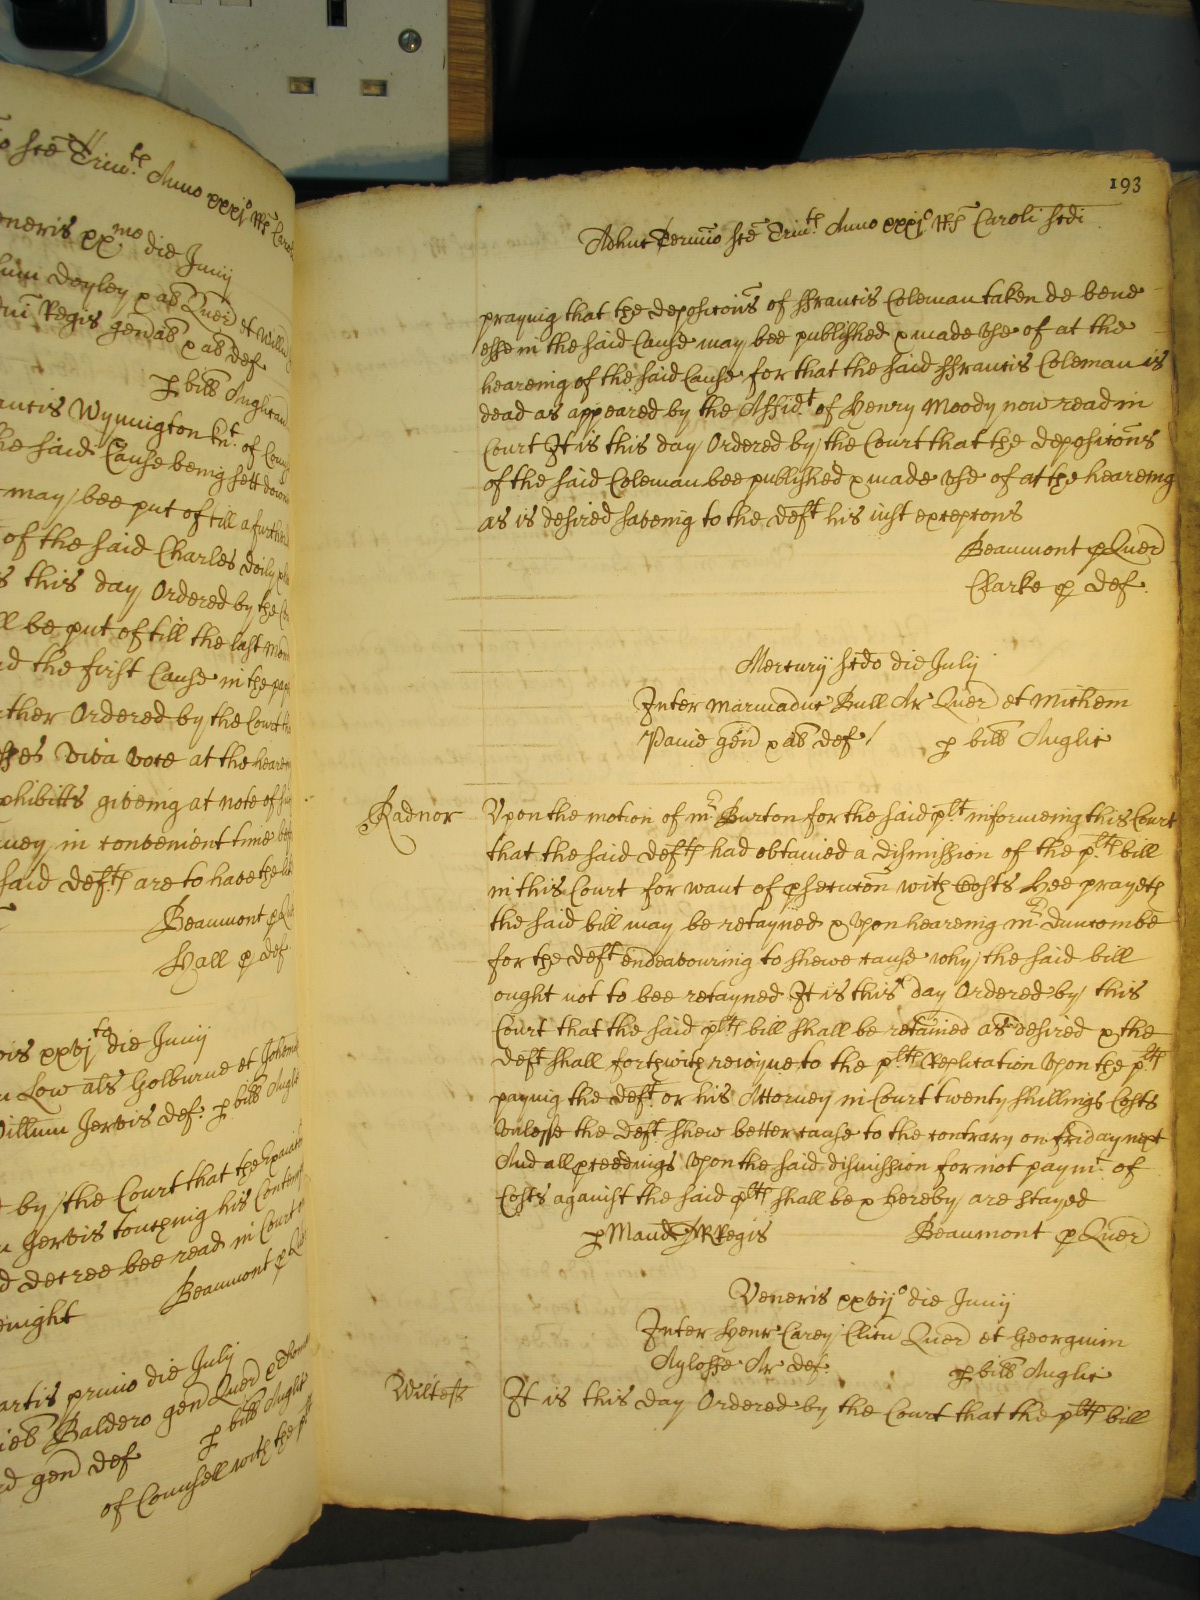 sce Trin.te Anno xxxjo Rs
Veneris xxmo die Junij
Doyley & ab Quer et
Regis gen ab & ab def
p bill Anglican
Wynnington knt. of
the said Cause being sett down
may bee put of till a further
of the said Charles doily
this day Ordered by the
be put of till the last
the first Cause in the
Ordered by the Court
viva voce at the
exhibitts giveing at note of
in convenient time
said defts are to have the
Beaumont p
Hall p def
xxvjto die Junij
Low als Golburne et
Willum Jervis def. p bill
by the Court that the
Jervis touching his
decree bee read in Court
Beaumont p
Martis primo die July
Baldero gen Quer &
p bill Anglic
gen def
of Counsell with the
193
Adhuc Termino sce Trin.te Anno xxxjo Rs Caroli scdi
praynig that the depositons of ffrancis Coleman taken de bene
esse in the said Cause may bee published & made vse of at the
heareing of the said Cause for that the said ffrancis Coleman is
dead as appeared by the Affid.t of Henry Moody now read in
Court It is this day Ordered by the Court that the depositons
of the said Coleman bee published & made vse of at the heareing
as is desired saveing to the deft his iust exceptons
Beaumont p Quer
Clarke p def.
Mercurij scdo die July
Inter Marmaduc Bull Ar Quer et Michem
Davie gen & ab def / p bill Anglic
Radnor
Vpon the motion of mr Burton for the said plt informeing this Court
that the said defts had obtained a dismission of the plts bill
in this Court for want of psecuton with Costs Hee prayeth
the said bill may be retayned & vpon heareing mr Duncombe
for the deft endeavouring to shewe cause why the said bill
ought not to bee retayned It is this day Ordered by this
Court that the said plts bill shall be retained as desired & the
deft shall forthwith reioyne to the plts Replication vpon the plts
paying the deft. or his Attorney in Court twenty shillings Costs
vnlesse the deft shew better cause to the contrary on friday next
And all pceedings vpon the said dismission for not paymt. of
Costs against the said plts shall be & hereby are stayed
Beaumont p Quer
Veneris xxvijo die Junij
Inter Henr Carey Clicu Quer et Georgium
Ayloffe Ar def. p bill Anglic
Wiltess
It is this day Ordered by the Court that the plts bill